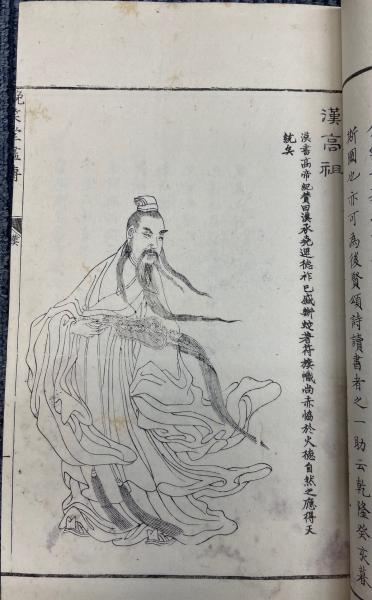 斯圖也亦可為後賢頌詩讀書者之一助云乾隆癸亥暮
漢高祖
漢書高帝紀贊曰漢承堯運德祚已盛斷蛇著符旗幟尚赤協於火德自然之應得天
統矣
晚笑堂畫傳
漢